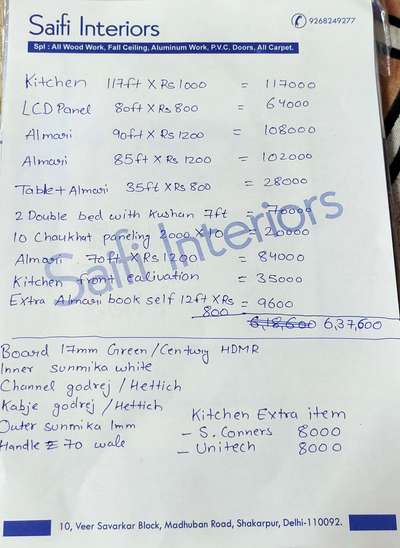 Saifi Interiors
9268249277
Spl : All Wood Work, Fall Ceiling, Aluminum Work, P.V.C. Doors, All Carpet.
Kitchen 117ft X Rs 1000 = 117000
LCD Panel 80ft X Rs 800 = 64000
Almari 90ft X Rs 1200 = 108000
Almari 85ft X Rs 1200 = 102000
Table + Almari 35ft X Rs 800 = 28000
2 Double bed with Kushan 7ft = 70000
10 Chaukhat paneling 2000 X 10 = 20000
Almari 70ft X Rs 1200 = 84000
Saifi Interiors
Kitchen front ealivation = 35000
Extra Almari book self 12ft X Rs 800 = 9600
6,18,600 6,37,600
Board 17mm Green/Century HDMR
Inner sunmika white
Channel godrej / Hettich
Kabje godrej / Hettich
Outer sunmika 1mm
Handle 70 wale
Kitchen Extra item
- S. Conners 8000
- Unitech 8000
10, Veer Savarkar Block, Madhuban Road, Shakarpur, Delhi-110092.